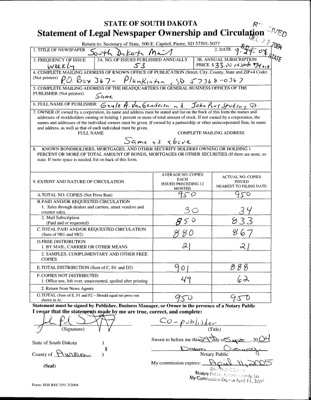 STATE OF SOUTH DAKOTA
Statement of Legal Newspaper Ownership and Circulation
Return to: Secretary of State, 500 E. Capitol, Pierre, SD 57501-5077
1. TITLE OF NEWSPAPER South Dakota Mail 2. DATE
3. FREQUENCY OF ISSUE 3A. NO. OF ISSUES PUBLISHED ANNUALLY 3B. ANNUAL SUBSCRIPTION
weekly 53 PRICE $
4. COMPLETE MAILING ADDRESS OF KNOWN OFFICE OF PUBLICATION (Street, City, County, State and ZIP+4 Code)
(Not printers) PO Box 367 - Plankinton, SD 57368-0367
5. COMPLETE MAILING ADDRESS OF THE HEADQUARTERS OR GENERAL BUSINESS OFFICES OF THE
PUBLISHER (Not printers) Same
6. FULL NAME OF PUBLISHER:
7. OWNER (If owned by a corporation, its name and address must be stated and on the back of this form the names and
addresses of stockholders owning or holding 1 percent or more of total amount of stock. If not owned by a corporation, the
names and addresses of the individual owners must be given. If owned by a partnership or other unincorporated firm, its name
and address, as well as that of each individual must be given.
FULL NAME COMPLETE MAILING ADDRESS
Same as above
8. KNOWN BONDHOLDERS, MORTGAGEES, AND OTHER SECURITY HOLDERS OWNING OR HOLDING 1
PERCENT OR MORE OF TOTAL AMOUNT OF BONDS, MORTGAGES OR OTHER SECURITIES (If there are none, so
state. If more space is needed, list on back of this form.
9. EXTENT AND NATURE OF CIRCULATION AVERAGE NO. COPIES EACH ISSUED PRECEDING 12 MONTHS ACTUAL NO. COPIES ISSUED NEAREST TO FILING DATE
A. TOTAL NO. COPIES (Net Press Run) 950 950
B. PAID AND/OR REQUESTED CIRCULATION
1. Sales through dealers and carriers, street vendors and
counter sales. 30 34
2. Mail Subscription
(Paid and or requested) 850 833
C. TOTAL PAID AND/OR REQUESTED CIRCULATION
(Sum of 9B1 and 9B2) 880 867
D. FREE DISTRIBUTION
1. BY MAIL, CARRIER OR OTHER MEANS 21 21
2. SAMPLES, COMPLIMENTARY AND OTHER FREE
COPIES
E. TOTAL DISTRIBUTION (Sum of C, D1 and D2) 901 888
F. COPIES NOT DISTRIBUTED
1. Office use, left over, unaccounted, spoiled after printing 49 62
2. Return from News Agents
G. TOTAL (Sum of E, F1 and F2 - Should equal net press run
shown in A) 950 950
Statement must be signed by Publisher, Business Manager, or Owner in the presence of a Notary Public
I swear that the statements made by me are true, correct, and complete:
Co-publisher
(Signature) (Title)
State of South Dakota )
Sworn to before me this
County of Aurora )
Notary Public
(Seal) My commission expires: April 11, 2005